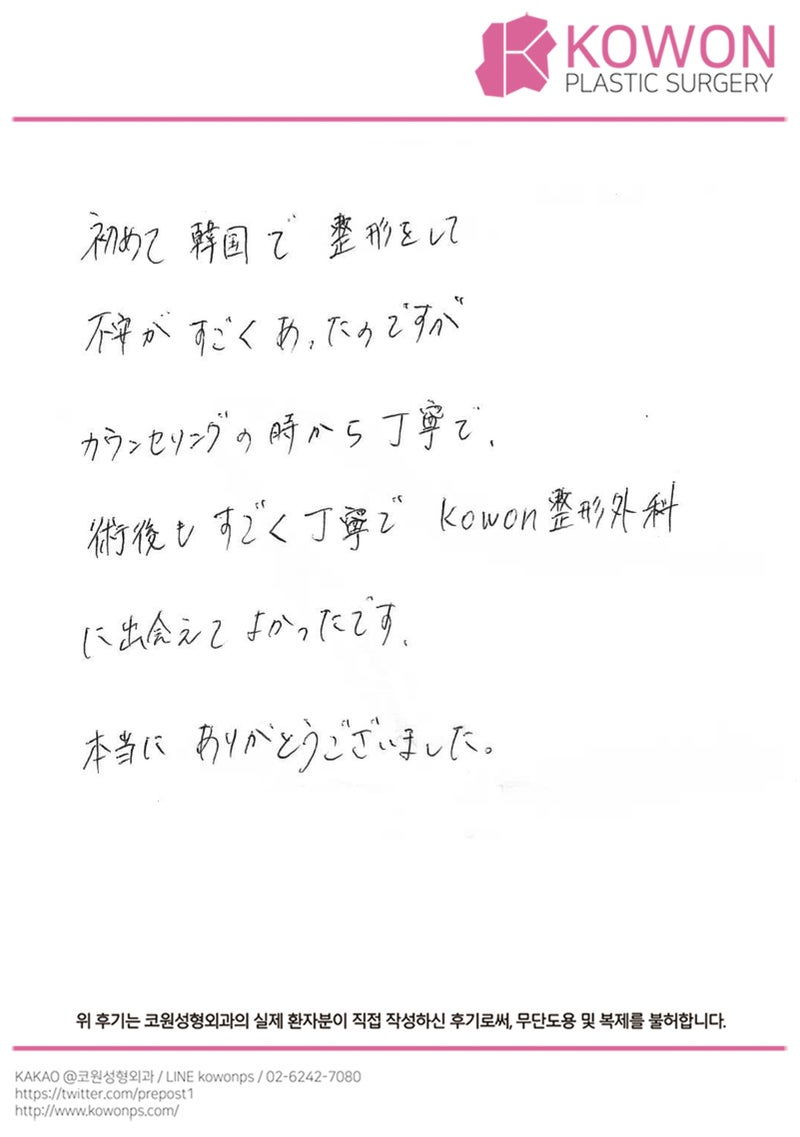 KOWON
PLASTIC SURGERY
初めて 韓国で 整形をして
不安が すごくあったのですが
カウンセリングの時から丁寧で、
術後も すごく丁寧で kowon整形外科
に出会えて よかったです、
本当に ありがとうございました。
위 후기는 코원성형외과의 실제 환자분이 직접 작성하신 후기로써, 무단도용 및 복제를 불허합니다.
KAKAO @코원성형외과 / LINE kowonps / 02-6242-7080
https://twitter.com/prepost1
http://www.kowonps.com/